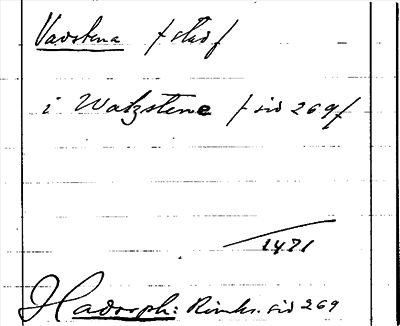 Vadstena / stad /
i Watzstene / sid 269 /
1471
Hadorph: Rimkr. sid 269